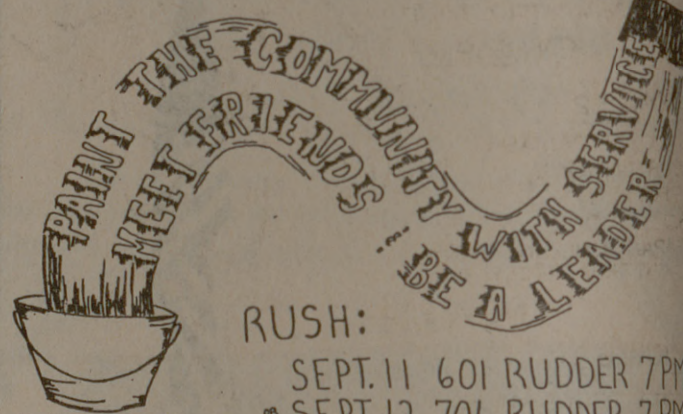 PAINT THE COMMUNITY WITH SERVICE
MEET FRIENDS : BE A LEADER
RUSH:
SEPT. 11 601 RUDDER 7 PM
SEPT. 12 701 RUDDER 7 PM